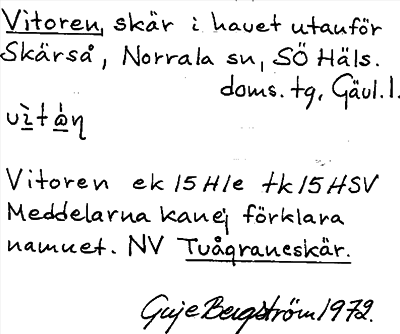 Vitoren, skär i havet utanför
Skärså, Norrala sn, SÖ Häls.
doms. tg, Gävl. l.
Vitoren ek 15 H1e tk 15 HSV
Meddelarna kan ej förklara
namnet. NV Tvågraneskär.
Bergström 1972.